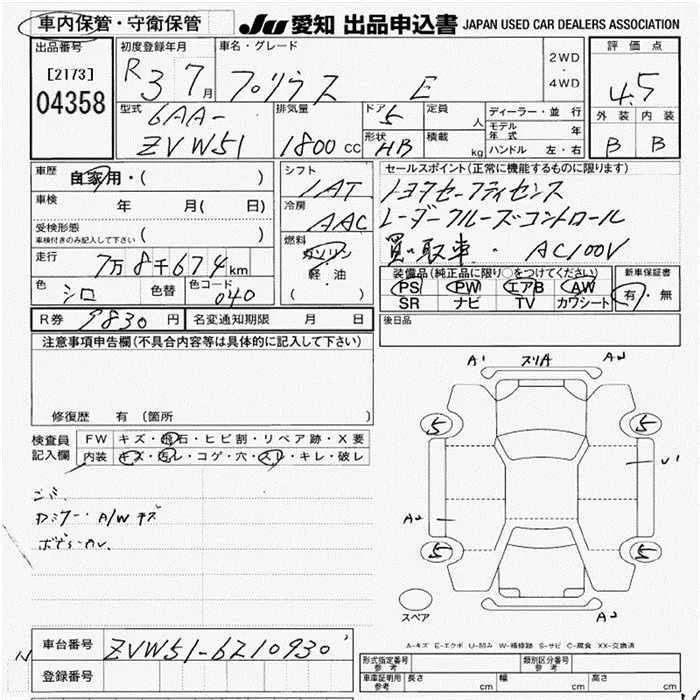 車内保管・守衛保管 JU 愛知 出品申込書 JAPAN USED CAR DEALERS ASSOCIATION
出品番号 初度登録年月 車名・グレード 2WD・4WD 評価点
[2173] R3 7月 プリウス E 4.5
04358 型式 6AA-ZVW51 排気量 1800cc ドア 5 形状 HB 定員 人 積載 kg
ディーラー・並行 モデル年式 年 ハンドル 左・右
外装 内装
B B
車歴 自家用・( )
車検 年 月( 日)
受検形態 車検付きのみ記入して下さい ( )
走行 7万8千674km
色 シロ 色替 色コード 040
シフト IAT
冷房 AAC
燃料 ガソリン 軽・油 ( )
セールスポイント(正常に機能するものに限ります)
トヨタセーフティセンス
レーダークルーズコントロール
買い取車・AC100V
装備品(純正品に限り○をつけてください) 新車保証書
PS PW エアB AW 有・無
SR ナビ TV カワシート
R券 9830円 名変通知期限 月 日
後日品
注意事項申告欄(不具合内容等は具体的に記入して下さい)
修復歴 有 (箇所 )
検査員記入欄 FW キズ・飛石・ヒビ割・リペア跡・X要
内装 キズ・汚レ・コゲ・穴・スレ・キレ・破レ
A1 スリA A2
5 5
U1
A2
5 5
スペア A2
A-キズ E-エクボ U-凹み W-補修跡 S-サビ C-腐食 XX-交換済
車台番号 ZVW51-6210930
登録番号
形式指定番号 参考 類別区分番号 参考
車庫証明用 参考 長さ cm 幅 cm 高さ cm